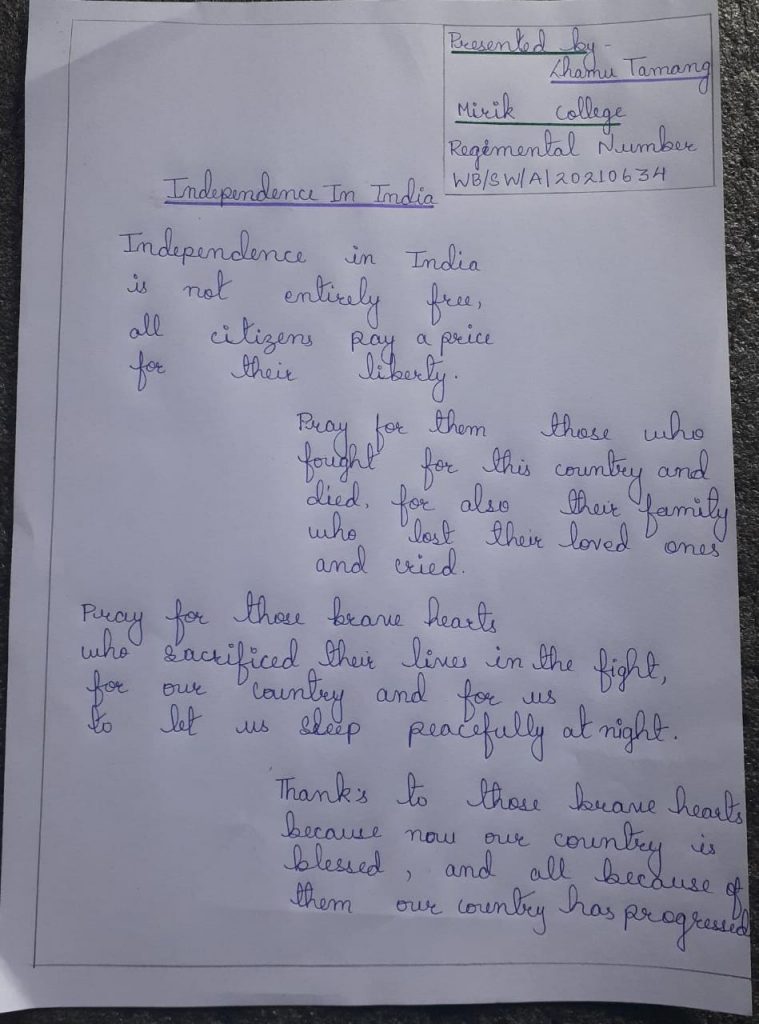 Presented by -
Lhamu Tamang
Mirik College
Regimental Number
WB/SW/A/20210634
Independence In India
Independence in India
is not entirely free,
all citizens pay a price
for their liberty.
Pray for them those who
fought for this country and
died, for also their family
who lost their loved ones
and cried.
Pray for those brave hearts
who sacrificed their lives in the fight,
for our country and for us
to let us sleep peacefully at night.
Thank's to those brave hearts
because now our country is
blessed, and all because of
them our country has progressed